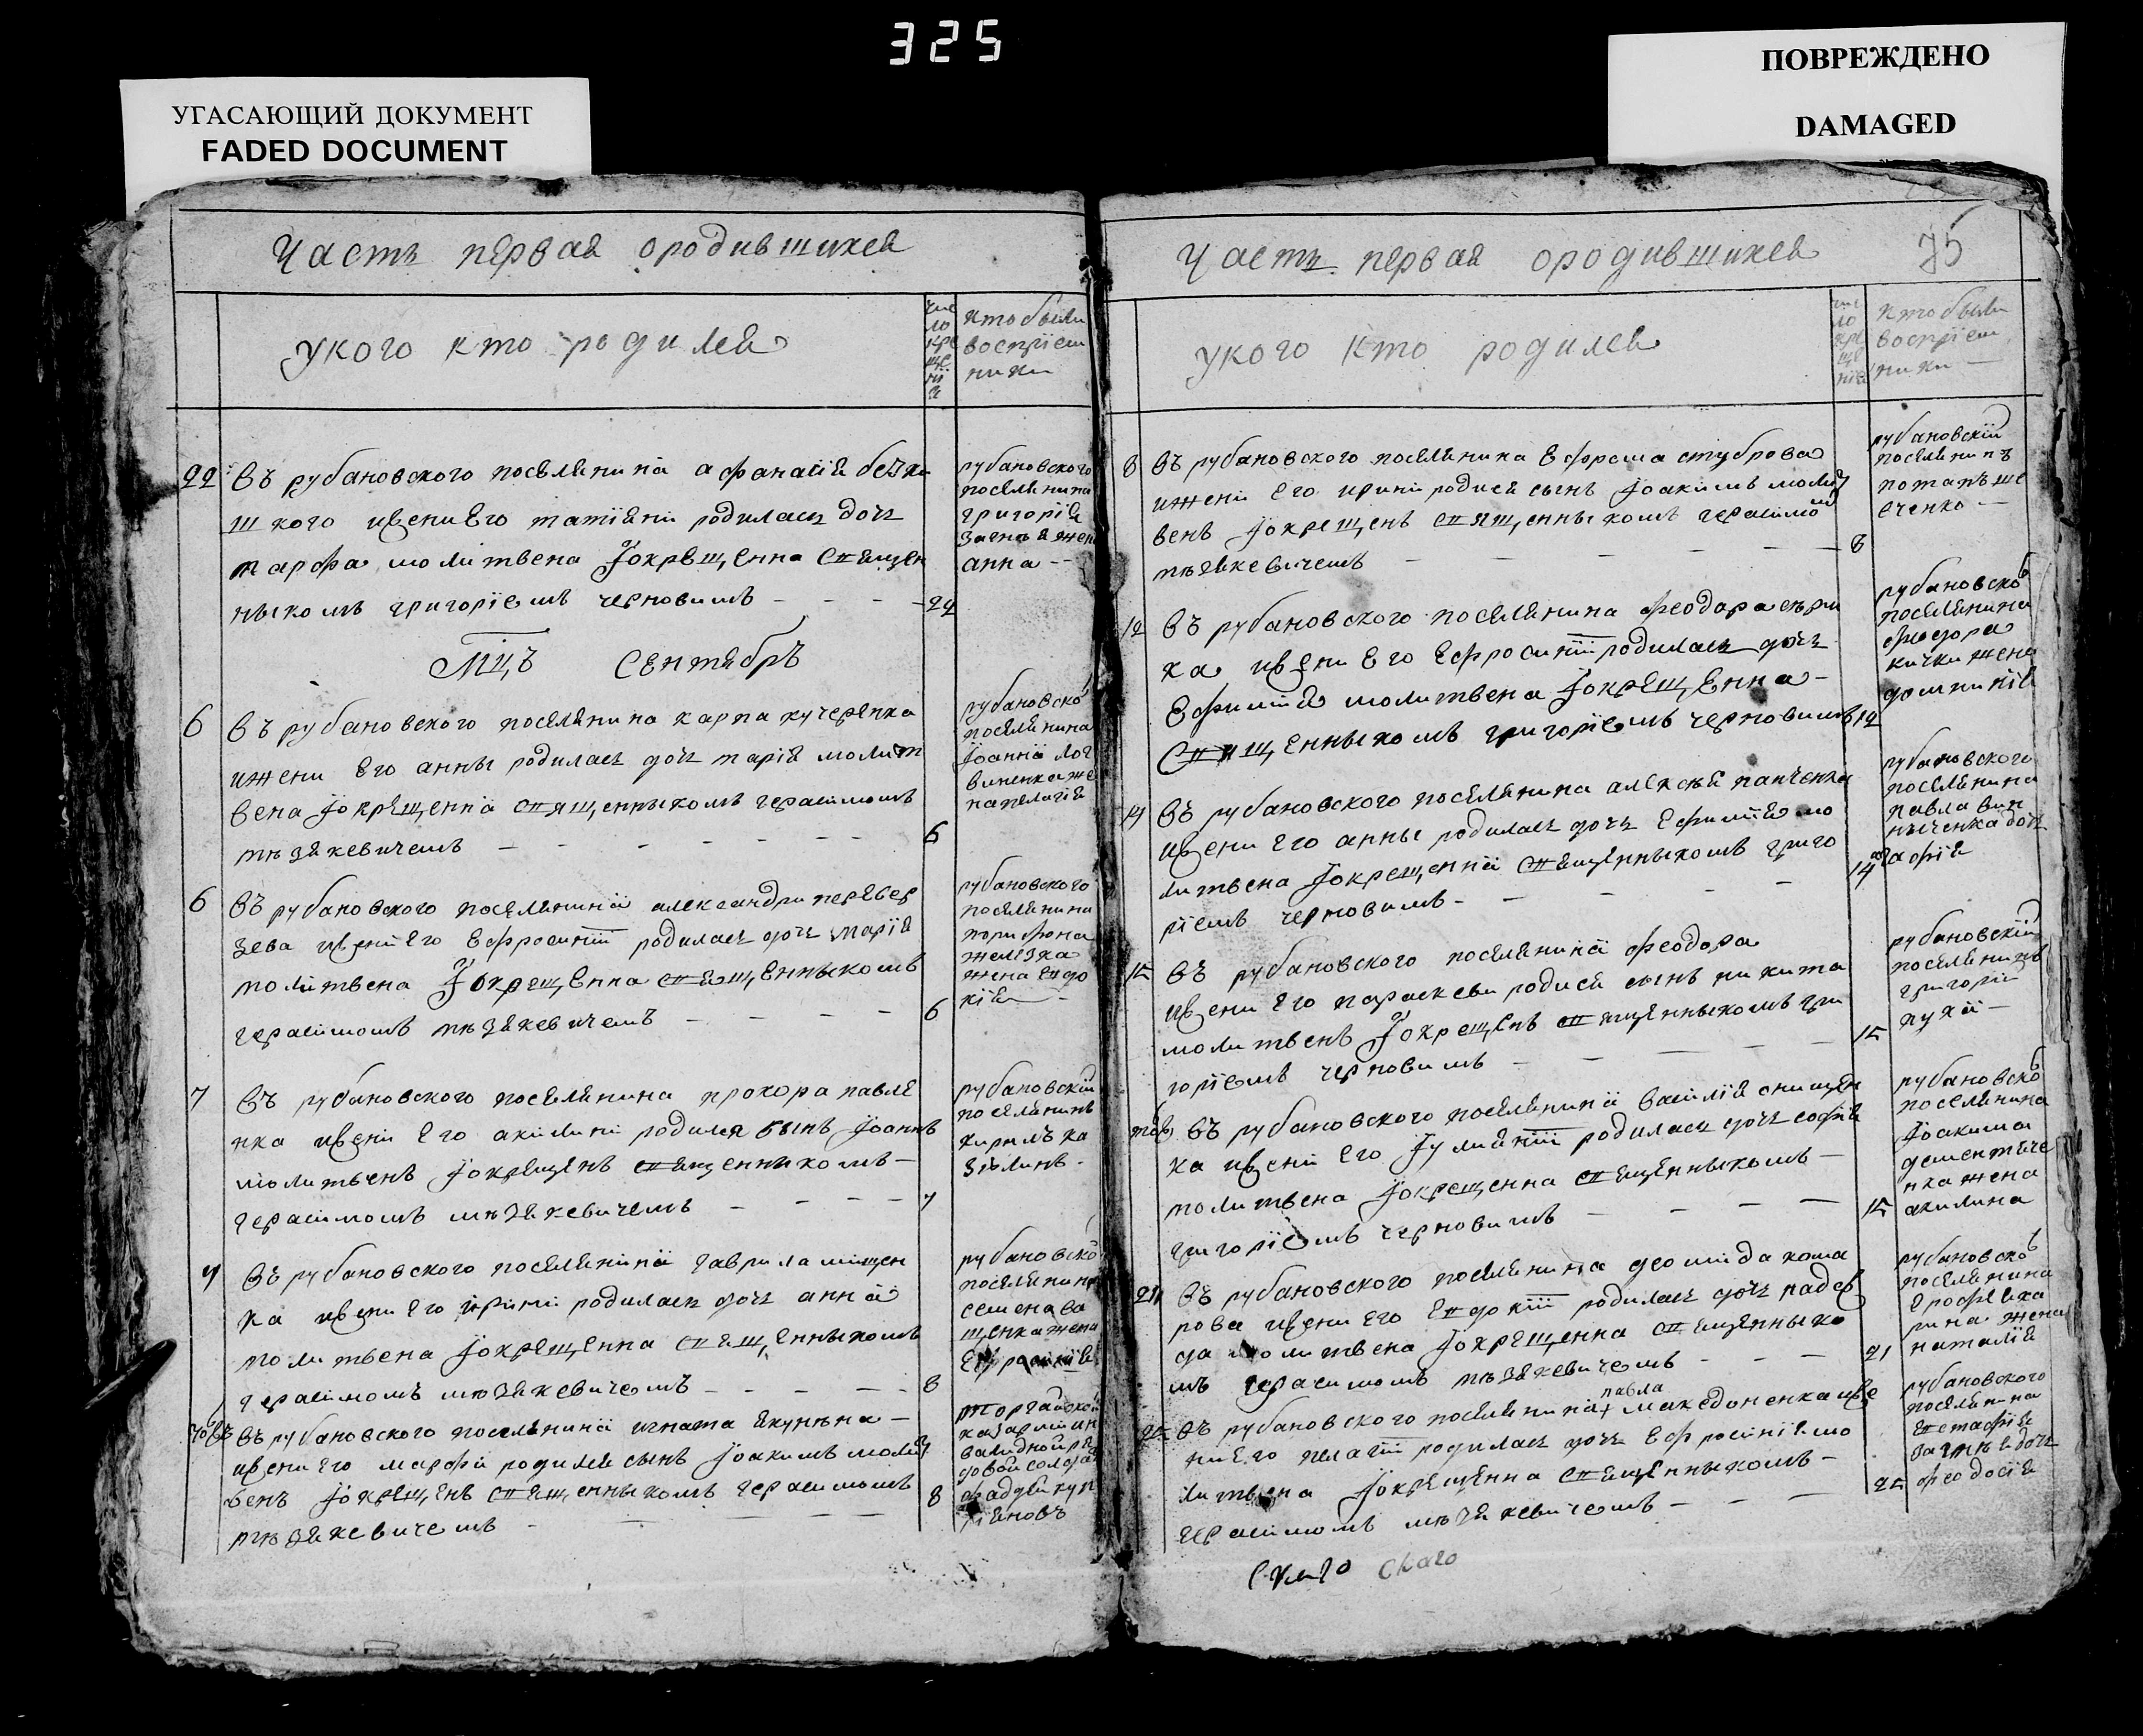 325
УГАСАЮЩИЙ ДОКУМЕНТ
FADED DOCUMENT
ПОВРЕЖДЕНО
DAMAGED
Часть первая ородившихся
укого кто родился
чис
ло
кре
ще
нї
я
кто были
восприем
ники
22 въ рубановского поселянина афанасія безк
шкого ижени Его татіяни родилась дочь
марфа молитвена Iокрещенна священ
ныкомъ григоріемъ черновимъ
22
рубановского
поселянина
григорія
жен
анна
Мцъ Сентябръ
6 въ рубановского поселянина карпа кучеренка
ижени Его анны родилась дочь марія молит
вена Iокрещенна священныкомъ герасимомъ
мѣзякевичемъ
6
рубановско
поселянина
Iоанна лог
виненка же
на пелагія
6 въ рубановского поселянина александри перевер
зева ижени Его Ефросинїи родилась дочь марія
молитвена Iокрещенна священныкомъ
герасимомъ мѣзякевичемъ
6
рубановского
поселянина
парифона
желѣзка
жена Евдо
кія
7 въ рубановского поселянина прохора павле
нка ижени Его акилини родился сынъ Iоаннъ
молитвенъ Iокрещенъ священныкомъ
герасимомъ мѣзякевичемъ
7
рубановскій
поселянинъ
кирилъ ка
зѣлинъ
7 въ рубановского поселянина гаврила мищен
ка ижени Его ирини родилась дочь анна
молитвена Iокрещенна священныкомъ
герасимомъ мѣзякевичемъ
8
рубановско
поселянина
семена ва
щенка жена
въ рубановского поселянина игната якунѣна
ижени Его марфи родился сынъ Iоакимъ молит
венъ Iокрещенъ священныкомъ герасимомъ
мѣзякевичемъ
8
солдат
фадей куп
ріяновъ
Часть первая ородившихся
75
укого кто родился
чис
ло
кре
ще
нія
кто были
восприем
ники
8 въ рубановского поселянина Ефрема стуброва
ижени Его ирини родися сынъ Iоакимъ молит
венъ Iокрещенъ священныкомъ герасимом
мѣзякевичемъ
8
рубановскій
поселянинъ
потапъ ше
вченко
12 въ рубановского поселянина феодора сѣри
ка ижени Его Ефросинїи родилась дочь
Ефимія молитвена Iокрещенна
священныкомъ григоріемъ черновимъ
12
рубановско
поселянина
феодора
кички жена
домникія
14 въ рубановского поселянина алексѣя панченка
ижени Его анны родилась дочь Ефимія мо
литвена Iокрещенна священныкомъ григо
ріемъ черновимъ
14
рубановского
поселянина
павла вин
ниченка дочь
агафія
15 въ рубановского поселянина феодора
ижени Его параскеви родися сынъ никита
молитвенъ Iокрещенъ священныкомъ гри
горіемъ черновимъ
15
рубановскій
поселянинъ
григорій
пуха
въ рубановского поселянина василія онищен
ка ижени Его Iуліянїи родилась дочь софія
молитвена Iокрещенна священныкомъ
григоріемъ черновимъ
15
рубановско
поселянина
Iоакима
дементѣче
нка жена
акилина
21 въ рубановского поселянина деомида кома
рова ижени Его Евдокїи родилась дочь надеж
да молитвена Iокрещенна священныко
мъ герасимомъ мѣзякевичемъ
21
рубановско
поселянина
Ерофея ка
рпина жена
наталія
25 въ рубановского поселянина павла македоненка иже
ни Его пелагїи родилась дочь Ефросинія мо
литвена Iокрещенна священныкомъ
герасимомъ мѣзякевичемъ
25
рубановского
поселянина
Евстафія
дочь
феодосія
ского